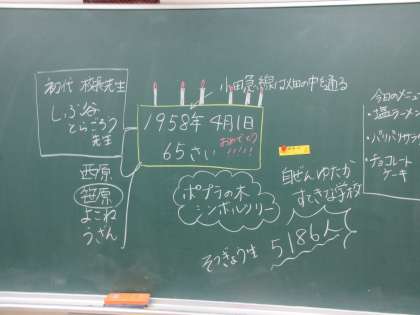 初代 校長先生
しぶ谷
とらごろう
先生
小田急線は畑の中を通る
1958年 4月1日
65さい
おめでとう
!!!!!
西原
笹原
よこね
うざん
ポプラの木
シンボルツリー
自ぜんゆたか
すてきな学校
そつぎょう生
5186人
今日のメニュー
・塩ラーメン
・パリパリサラダ
・チョコレート
ケーキ